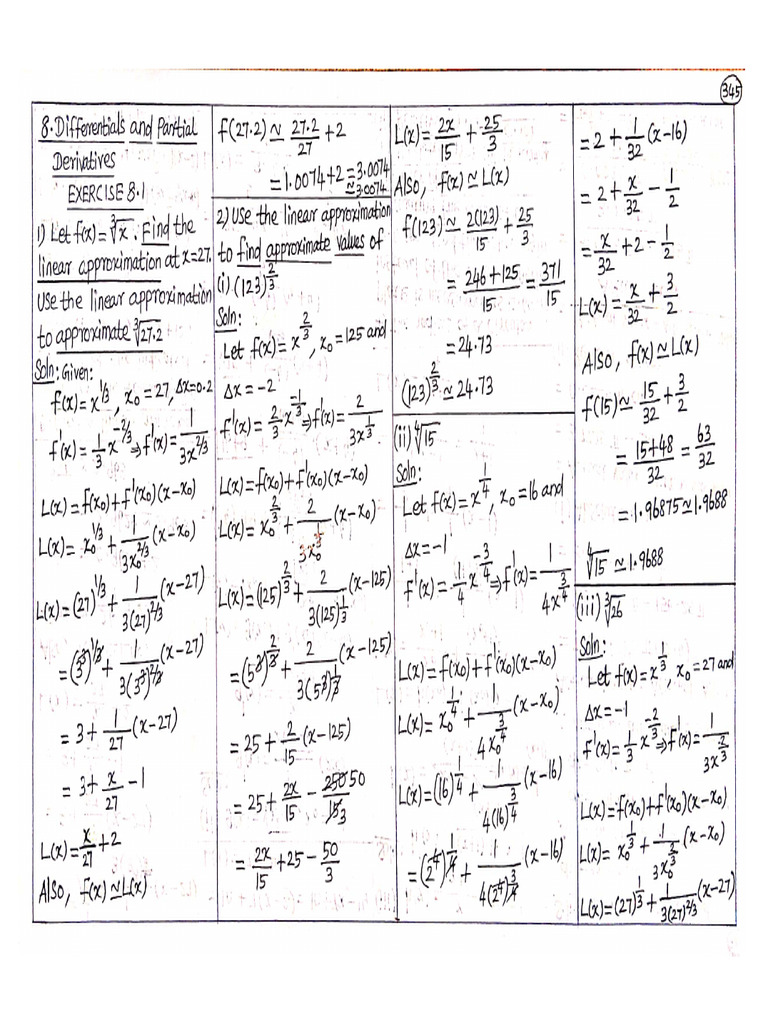 345
8. Differentials and Partial
Derivatives
EXERCISE 8.1
1) Let f(x) = ∛x. Find the
linear approximation at x=27.
Use the linear approximation
to approximate ∛27.2
Soln: Given:
f(x) = x^1/3, x₀ = 27, Δx = 0.2
f'(x) = 1/3 x^-2/3 ⇒ f'(x) = 1/3x^2/3
L(x) = f(x₀) + f'(x₀)(x-x₀)
L(x) = x₀^1/3 + 1/3x₀^2/3 (x-x₀)
L(x) = (27)^1/3 + 1/3(27)^2/3 (x-27)
= (3^3)^1/3 + 1/3(3^3)^2/3 (x-27)
= 3 + 1/27 (x-27)
= 3 + x/27 - 1
L(x) = x/27 + 2
Also, f(x) ≃ L(x)
f(27.2) ≃ 27.2/27 + 2
= 1.0074 + 2 = 3.0074
≃ 3.0074
2) Use the linear approximation
to find approximate values of
(i) (123)^2/3
Soln:
Let f(x) = x^2/3, x₀ = 125 and
Δx = -2
f'(x) = 2/3 x^-1/3 ⇒ f'(x) = 2/3x^1/3
L(x) = f(x₀) + f'(x₀)(x-x₀)
L(x) = x₀^2/3 + 2/3x₀^1/3 (x-x₀)
L(x) = (125)^2/3 + 2/3(125)^1/3 (x-125)
= (5^3)^2/3 + 2/3(5^3)^1/3 (x-125)
= 25 + 2/15 (x-125)
= 25 + 2x/15 - 250 50/15 3
= 2x/15 + 25 - 50/3
L(x) = 2x/15 + 25/3
Also, f(x) ≃ L(x)
f(123) ≃ 2(123)/15 + 25/3
= 246+125/15 = 371/15
= 24.73
(123)^2/3 ≃ 24.73
(ii) ∜15
Soln:
Let f(x) = x^1/4, x₀ = 16 and
Δx = -1
f'(x) = 1/4 x^-3/4 ⇒ f'(x) = 1/4x^3/4
L(x) = f(x₀) + f'(x₀)(x-x₀)
L(x) = x₀^1/4 + 1/4x₀^3/4 (x-x₀)
L(x) = (16)^1/4 + 1/4(16)^3/4 (x-16)
= (2^4)^1/4 + 1/4(2^4)^3/4 (x-16)
= 2 + 1/32 (x-16)
= 2 + x/32 - 1/2
= x/32 + 2 - 1/2
L(x) = x/32 + 3/2
Also, f(x) ≃ L(x)
f(15) ≃ 15/32 + 3/2
= 15+48/32 = 63/32
= 1.96875 ≃ 1.9688
∜15 ≃ 1.9688
(iii) ∛26
Soln:
Let f(x) = x^1/3, x₀ = 27 and
Δx = -1
f'(x) = 1/3 x^-2/3 ⇒ f'(x) = 1/3x^2/3
L(x) = f(x₀) + f'(x₀)(x-x₀)
L(x) = x₀^1/3 + 1/3x₀^2/3 (x-x₀)
L(x) = (27)^1/3 + 1/3(27)^2/3 (x-27)